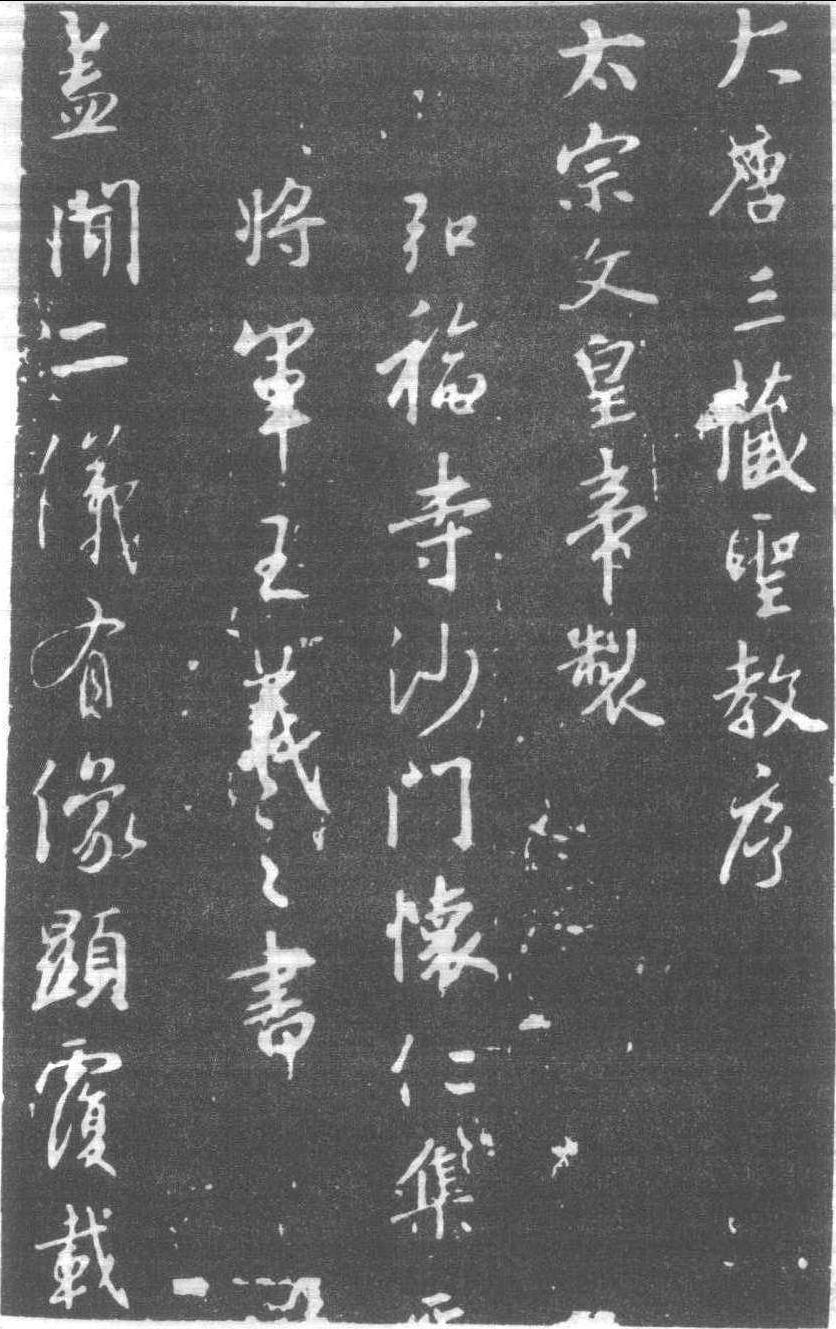 大唐三藏聖教序
太宗文皇帝製
弘福寺沙門懷仁集
將軍王羲之書
蓋聞二儀有像顯覆載